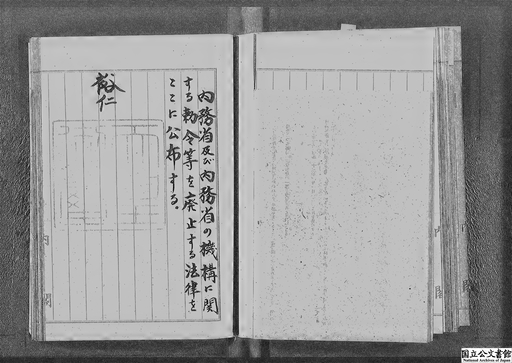 内務省及び内務省の機構に関
する勅令等を廃止する法律を
ここに公布する。
裕仁
内閣
国立公文書館
National Archives of Japan